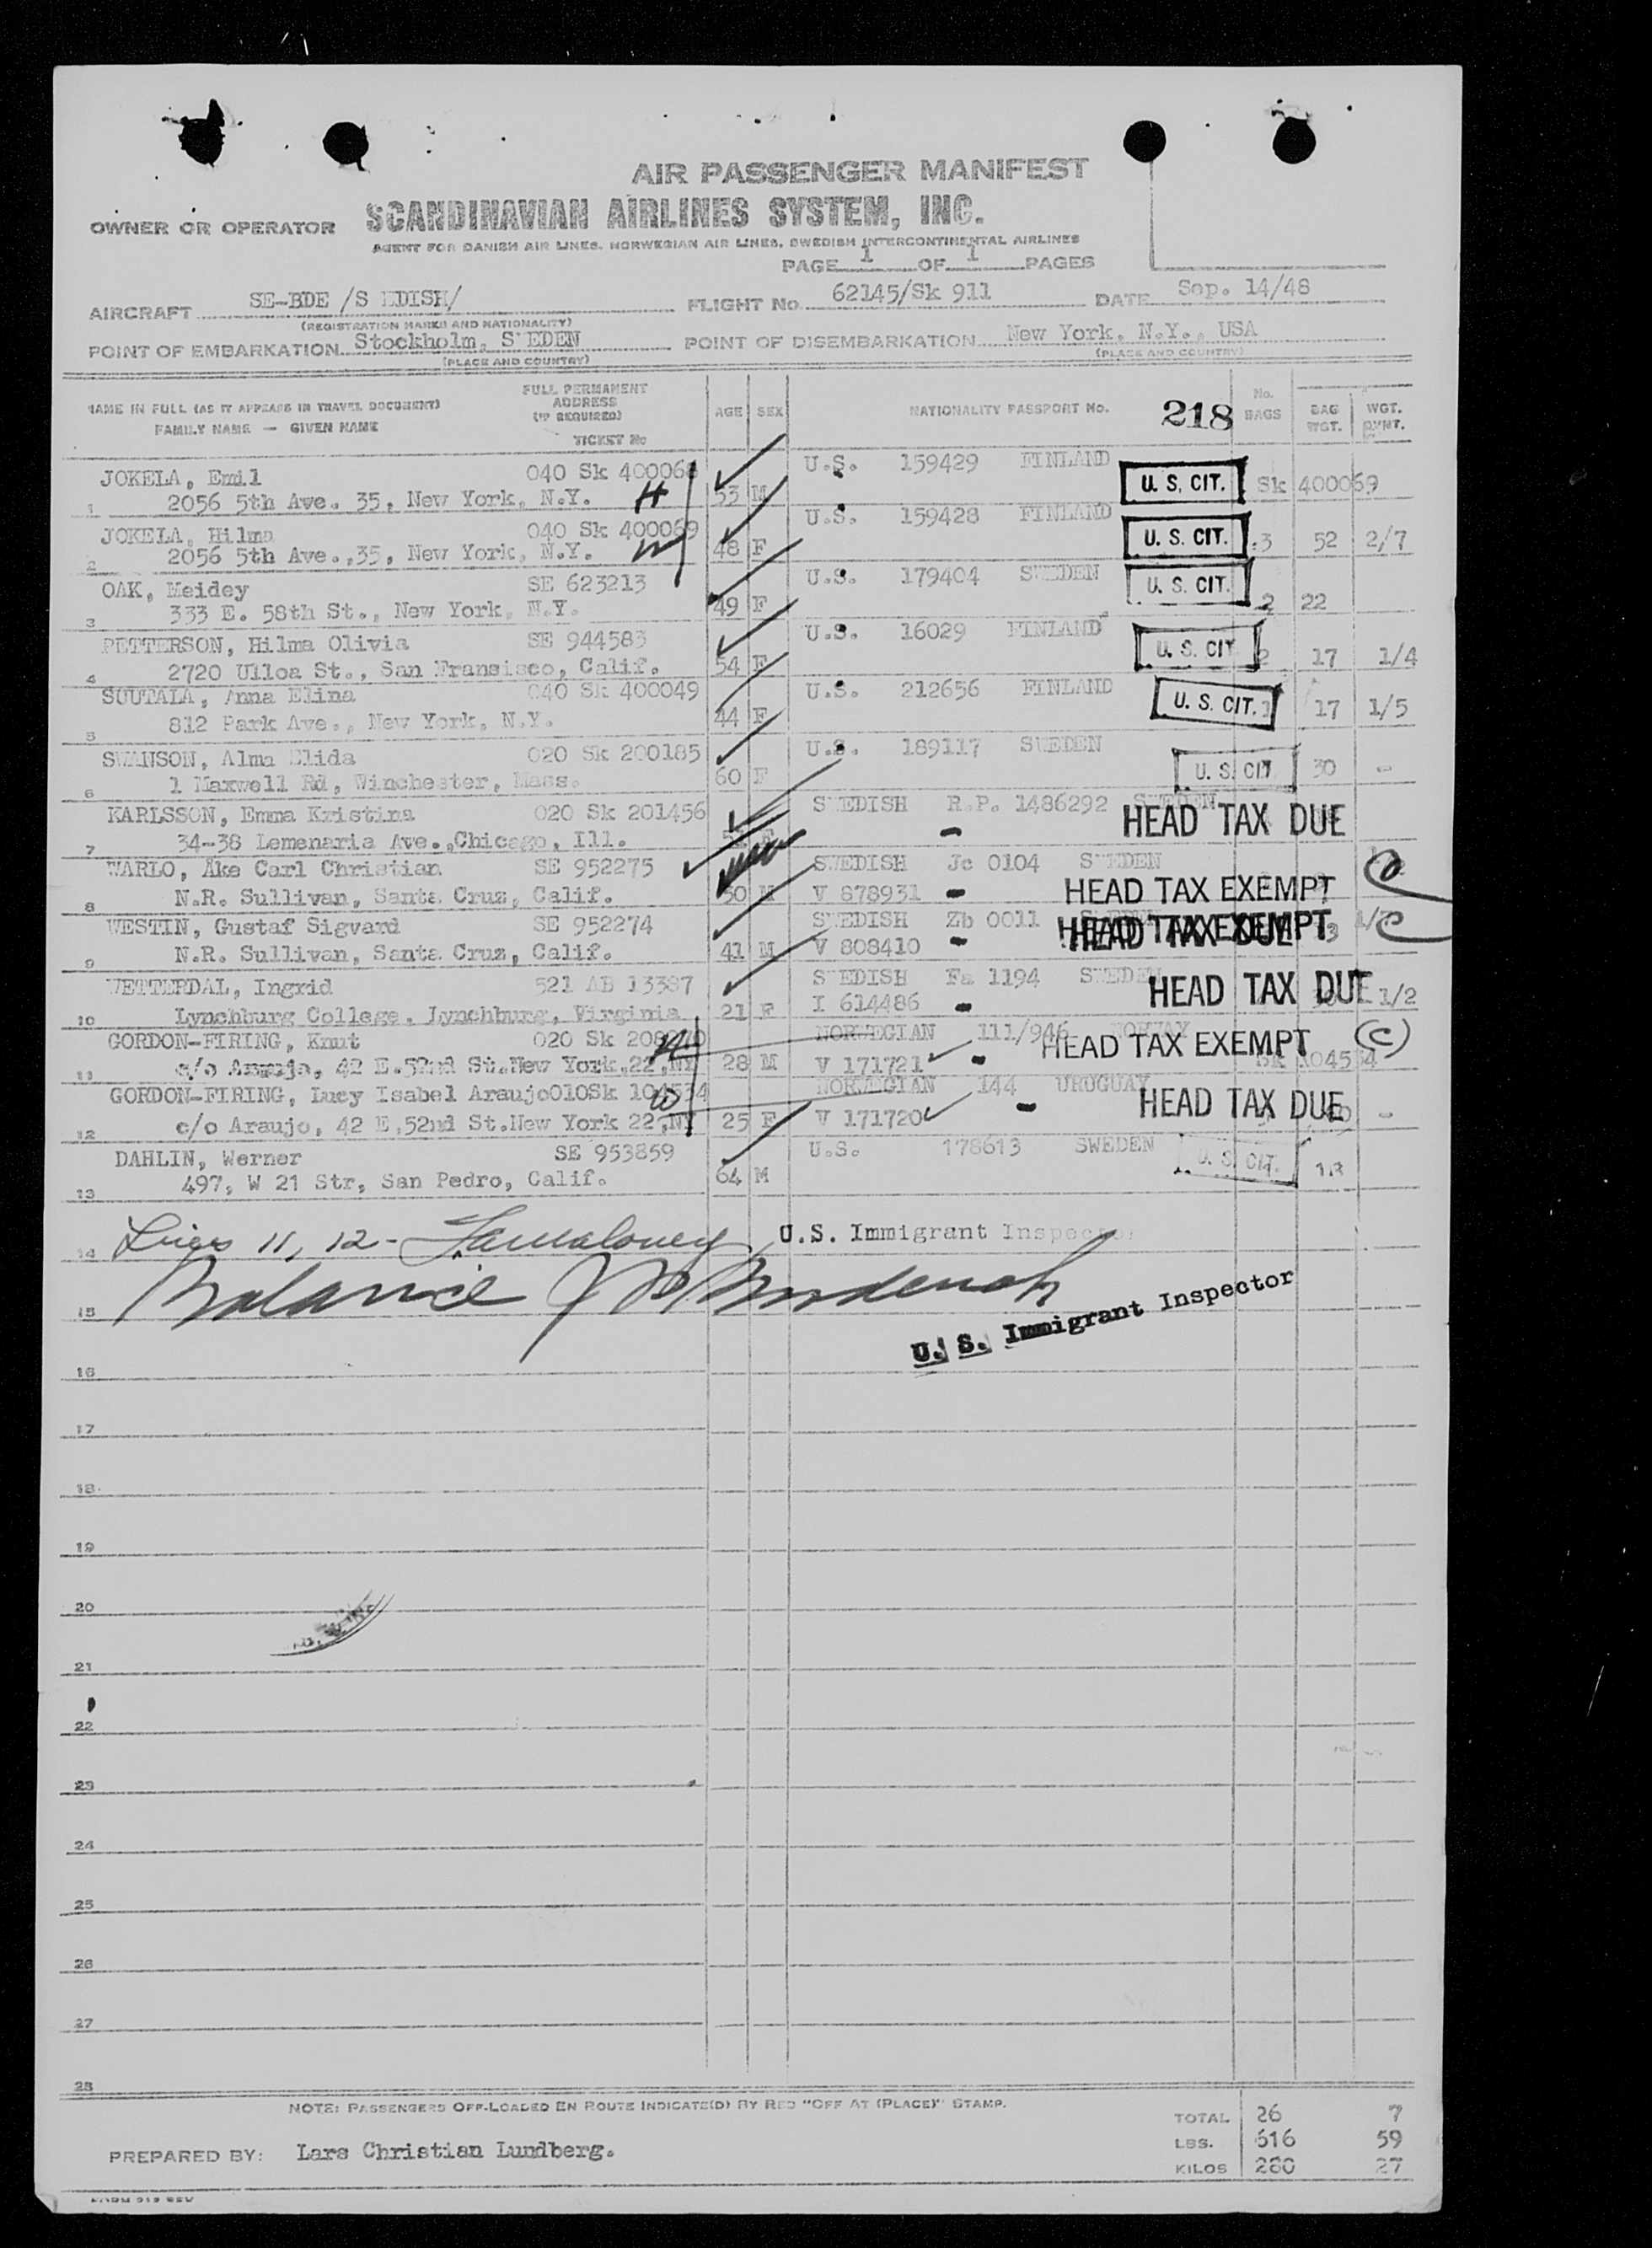 AIR PASSENGER MANIFEST
OWNER OR OPERATOR SCANDINAVIAN AIRLINES SYSTEM, INC.
AGENT FOR DANISH AIR LINES, NORWEGIAN AIR LINES, SWEDISH INTERCONTINENTAL AIRLINES
PAGE 1 OF 1 PAGES
AIRCRAFT SE-BDE /S EDISH/ FLIGHT No. 62145/Sk 911 DATE Sep. 14/48
(REGISTRATION MARKS AND NATIONALITY)
POINT OF EMBARKATION Stockholm, S EDEN POINT OF DISEMBARKATION New York, N.Y., USA
(PLACE AND COUNTRY) (PLACE AND COUNTRY)
NAME IN FULL (AS IT APPEARS IN TRAVEL DOCUMENT) FULL PERMANENT ADDRESS (IF REQUIRED) AGE SEX NATIONALITY PASSPORT No. 218 No. BAGS BAG WGT. WGT.
FAMILY NAME — GIVEN NAME TICKET No
JOKELA, Emil 040 Sk 400068 U.S. 159429 FINLAND
1 2056 5th Ave. 35, New York, N.Y. H 53 M U. S. CIT. Sk 400069
JOKELA, Hilma 040 Sk 400069 U.S. 159428 FINLAND
2 2056 5th Ave.,35, New York, N.Y. W 48 F U. S. CIT. 3 52 2/7
OAK, Meidey SE 623213 U.S. 179404 S EDEN
3 333 E. 58th St., New York, N.Y. 49 F U. S. CIT. 2 22
PETTERSON, Hilma Olivia SE 944583 U.S. 16029 FINLAND
4 2720 Ulloa St., San Fransisco, Calif. 54 F U. S. CIT 2 17 1/4
SUUTALA, Anna Elina 040 Sk 400049 U.S. 212656 FINLAND
5 812 Park Ave., New York, N.Y. 44 F U. S. CIT. 17 1/5
SWANSON, Alma Elida 020 Sk 200185 U.S. 189117 SWEDEN
6 1 Maxwell Rd, Winchester, Mass. 60 F U. S. CIT 30 -
KARLSSON, Emma Kristina 020 Sk 201456 S EDISH R.P. 1486292 SWEDEN
7 34-38 Lemenaria Ave.,Chicago, Ill. F HEAD TAX DUE
WARLO, Åke Carl Christian SE 952275 SWEDISH Jc 0104 S EDEN
8 N.R. Sullivan, Santa Cruz, Calif. 50 M V 878931 - HEAD TAX EXEMPT
WESTIN, Gustaf Sigvard SE 952274 S EDISH Zb 0011
9 N.R. Sullivan, Santa Cruz, Calif. 41 M V 808410 - HEAD TAX EXEMPT HEAD TAX DUE
WETTERDAL, Ingrid 521 AB 13387 S EDISH Fa 1194 SWEDEN
10 Lynchburg College, Lynchburg, Virginia 21 F I 614486 - HEAD TAX DUE 1/2
GORDON-FIRING, Knut 020 Sk NORWEGIAN 111/946 NORWAY
11 c/o Araujo, 42 E.52nd St.New York,22,NY H 28 M V 171721 - HEAD TAX EXEMPT (C) Sk 104534
GORDON-FIRING, Lucy Isabel Araujo010Sk 104534 NORWEGIAN 144 URUGUAY
12 c/o Araujo, 42 E.52nd St.New York 22,NY W 25 F V 171720 - HEAD TAX DUE -
DAHLIN, Werner SE 953859 U.S. 178613 SWEDEN
13 497, W 21 Str, San Pedro, Calif. 64 M U. S. CIT. 18
14 Lines 11, 12 - U.S. Immigrant Inspector
15 Balance
U. S. Immigrant Inspector
16
17
18
19
20
21
22
23
24
25
26
27
28
NOTE: PASSENGERS OFF-LOADED EN ROUTE INDICATE(D) BY RED "OFF AT (PLACE)" STAMP.
TOTAL 26 7
LBS. 616 59
PREPARED BY: Lars Christian Lundberg.
KILOS 280 27